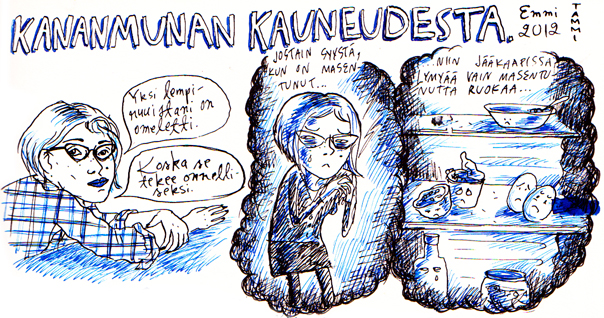 KANANMUNAN KAUNEUDESTA.
Emmi
2012
TAMMI
Yksi lempi-
ruuistani on
omeletti.
Koska se
tekee onnelli-
seksi.
JOSTAIN SYYSTÄ,
KUN ON MASEN-
TUNUT...
...NIIN JÄÄKAAPISSA
LYMYÄÄ VAIN MASENTU-
NUTTA RUOKAA...